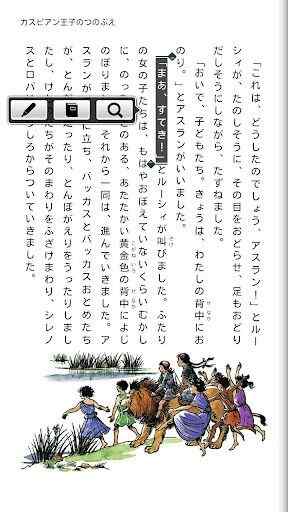 カスピアン王子のつのぶえ
「これは、どうしたのでしょう、アスラン！」とルー
シィが、たのしそうに、その目をおどらせ、足もおどり
だしそうにしながら、たずねました。
「おいで、子どもたち。きょうは、わたしの背中にお
のり。」とアスランがいいました。
「まあ、すてき！」とルーシィが叫びました。ふたり
の女の子たちは、もはやおぼえていないくらいむかし
に、のっ のある、あたたかい黄金色の背中によじ
のぼりま それから一同は、進んでいきました。ア
スランが に立ち、バッカスとバッカスおとめたち
が、とん ったり、とんぼがえりをうったりしまし
たし、け たちがそのまわりをふざけまわり、シレノ
スとロバ しろからついていきました。